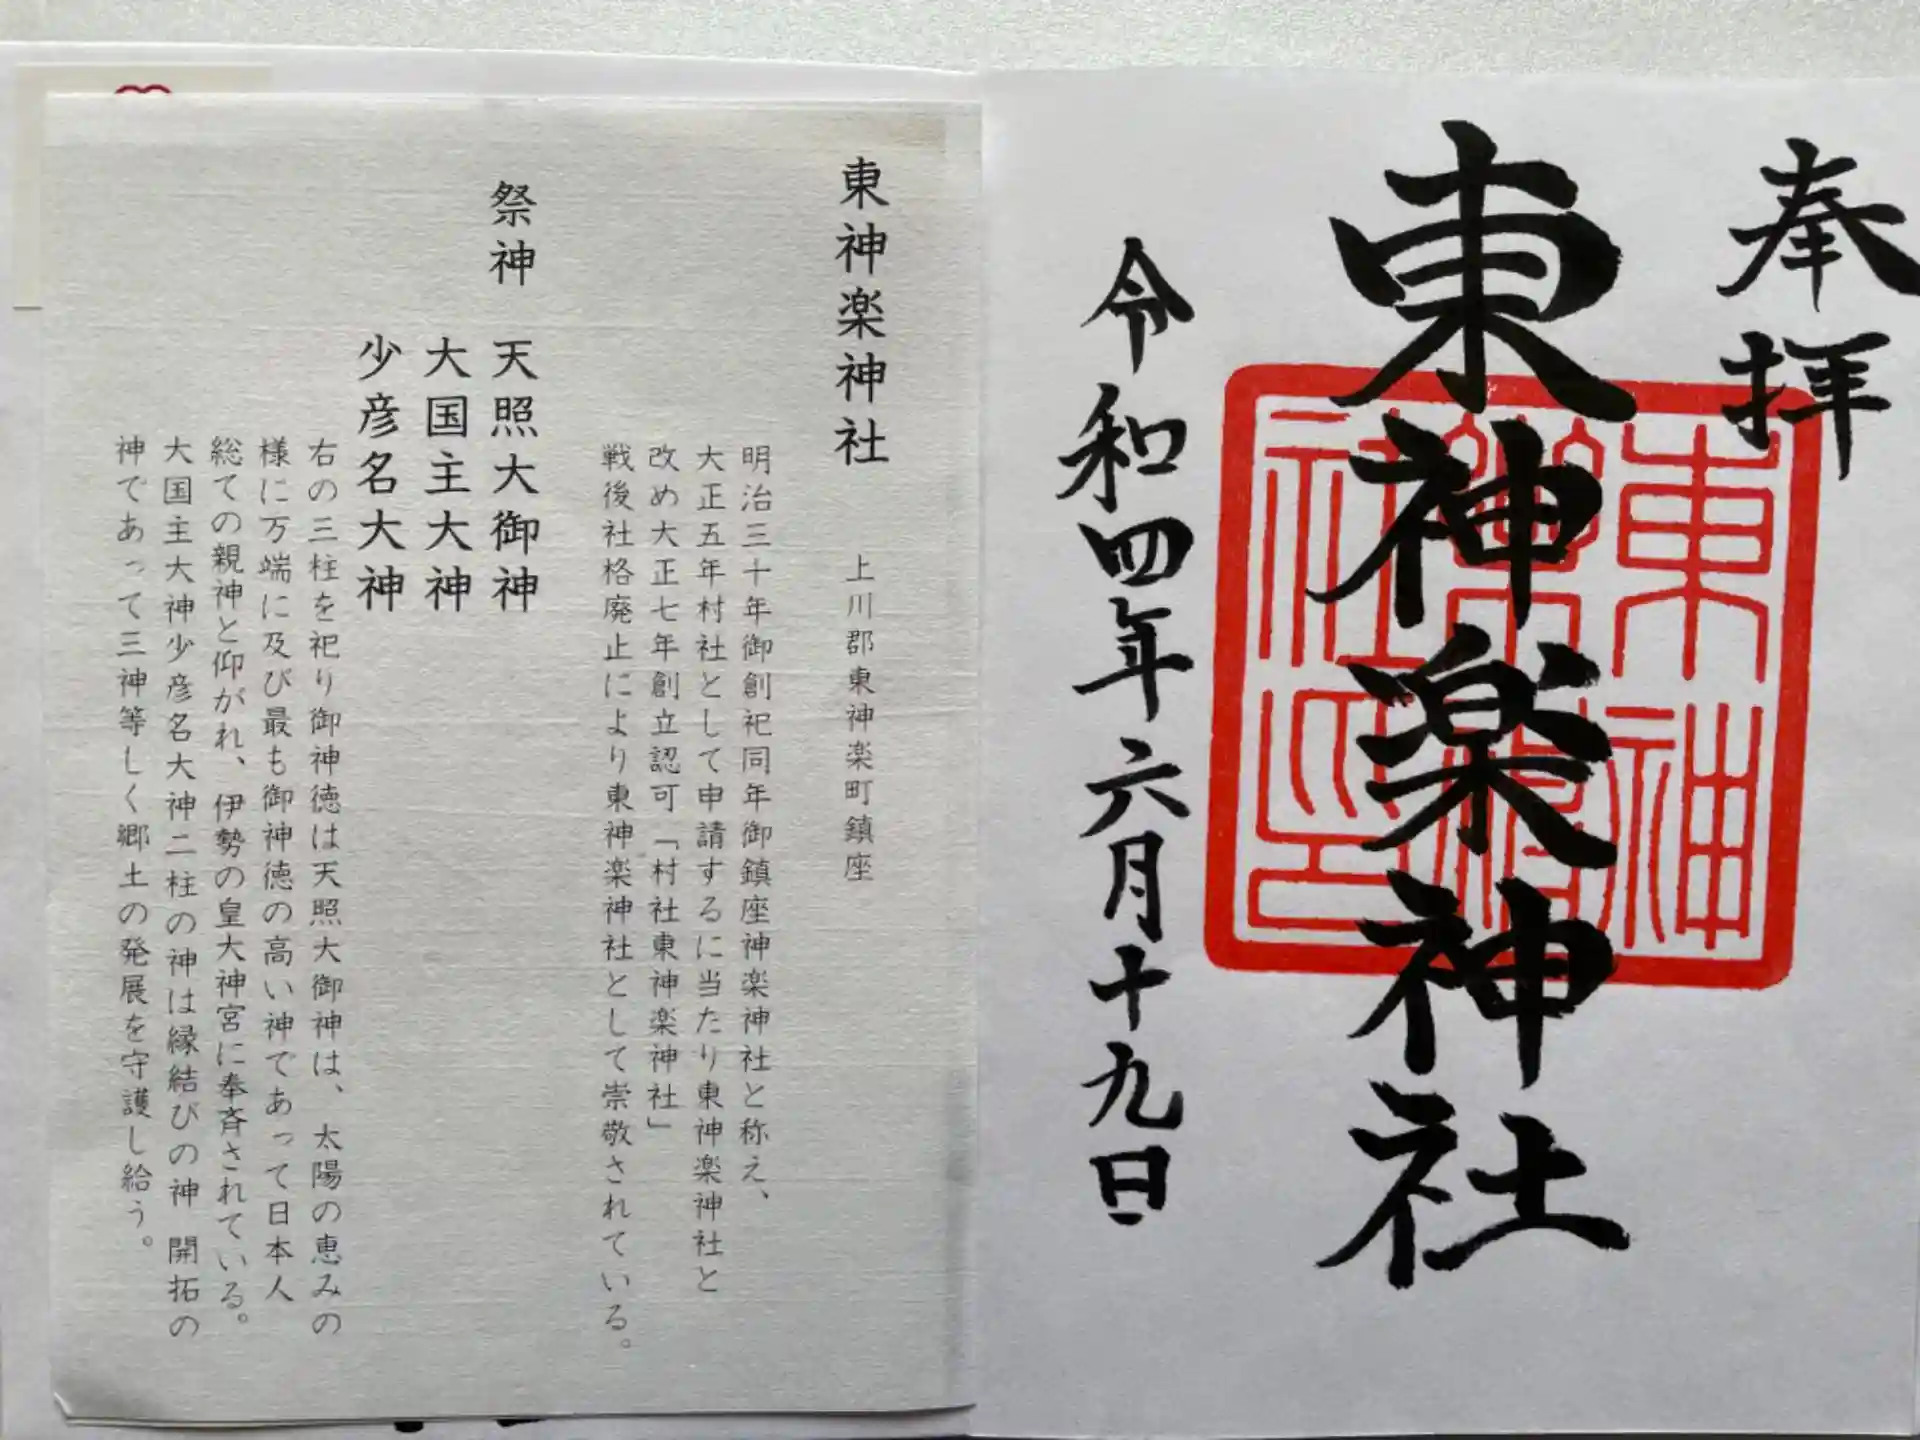 奉拝
東神楽神社
令和四年六月十九日
東神楽神社
上川郡東神楽町鎮座
明治三十年御創祀同年御鎮座神楽神社と称え、
大正五年村社として申請するに当たり東神楽神社と
改め大正七年創立認可「村社東神楽神社」
戦後社格廃止により東神楽神社として崇敬されている。
祭神 天照大御神
大国主大神
少彦名大神
右の三柱を祀り御神徳は天照大御神は、太陽の恵みの
様に万端に及び最も御神徳の高い神であって日本人
総ての親神と仰がれ、伊勢の皇大神宮に奉斉されている。
大国主大神少彦名大神二柱の神は縁結びの神 開拓の
神であって三神等しく郷土の発展を守護し給う。